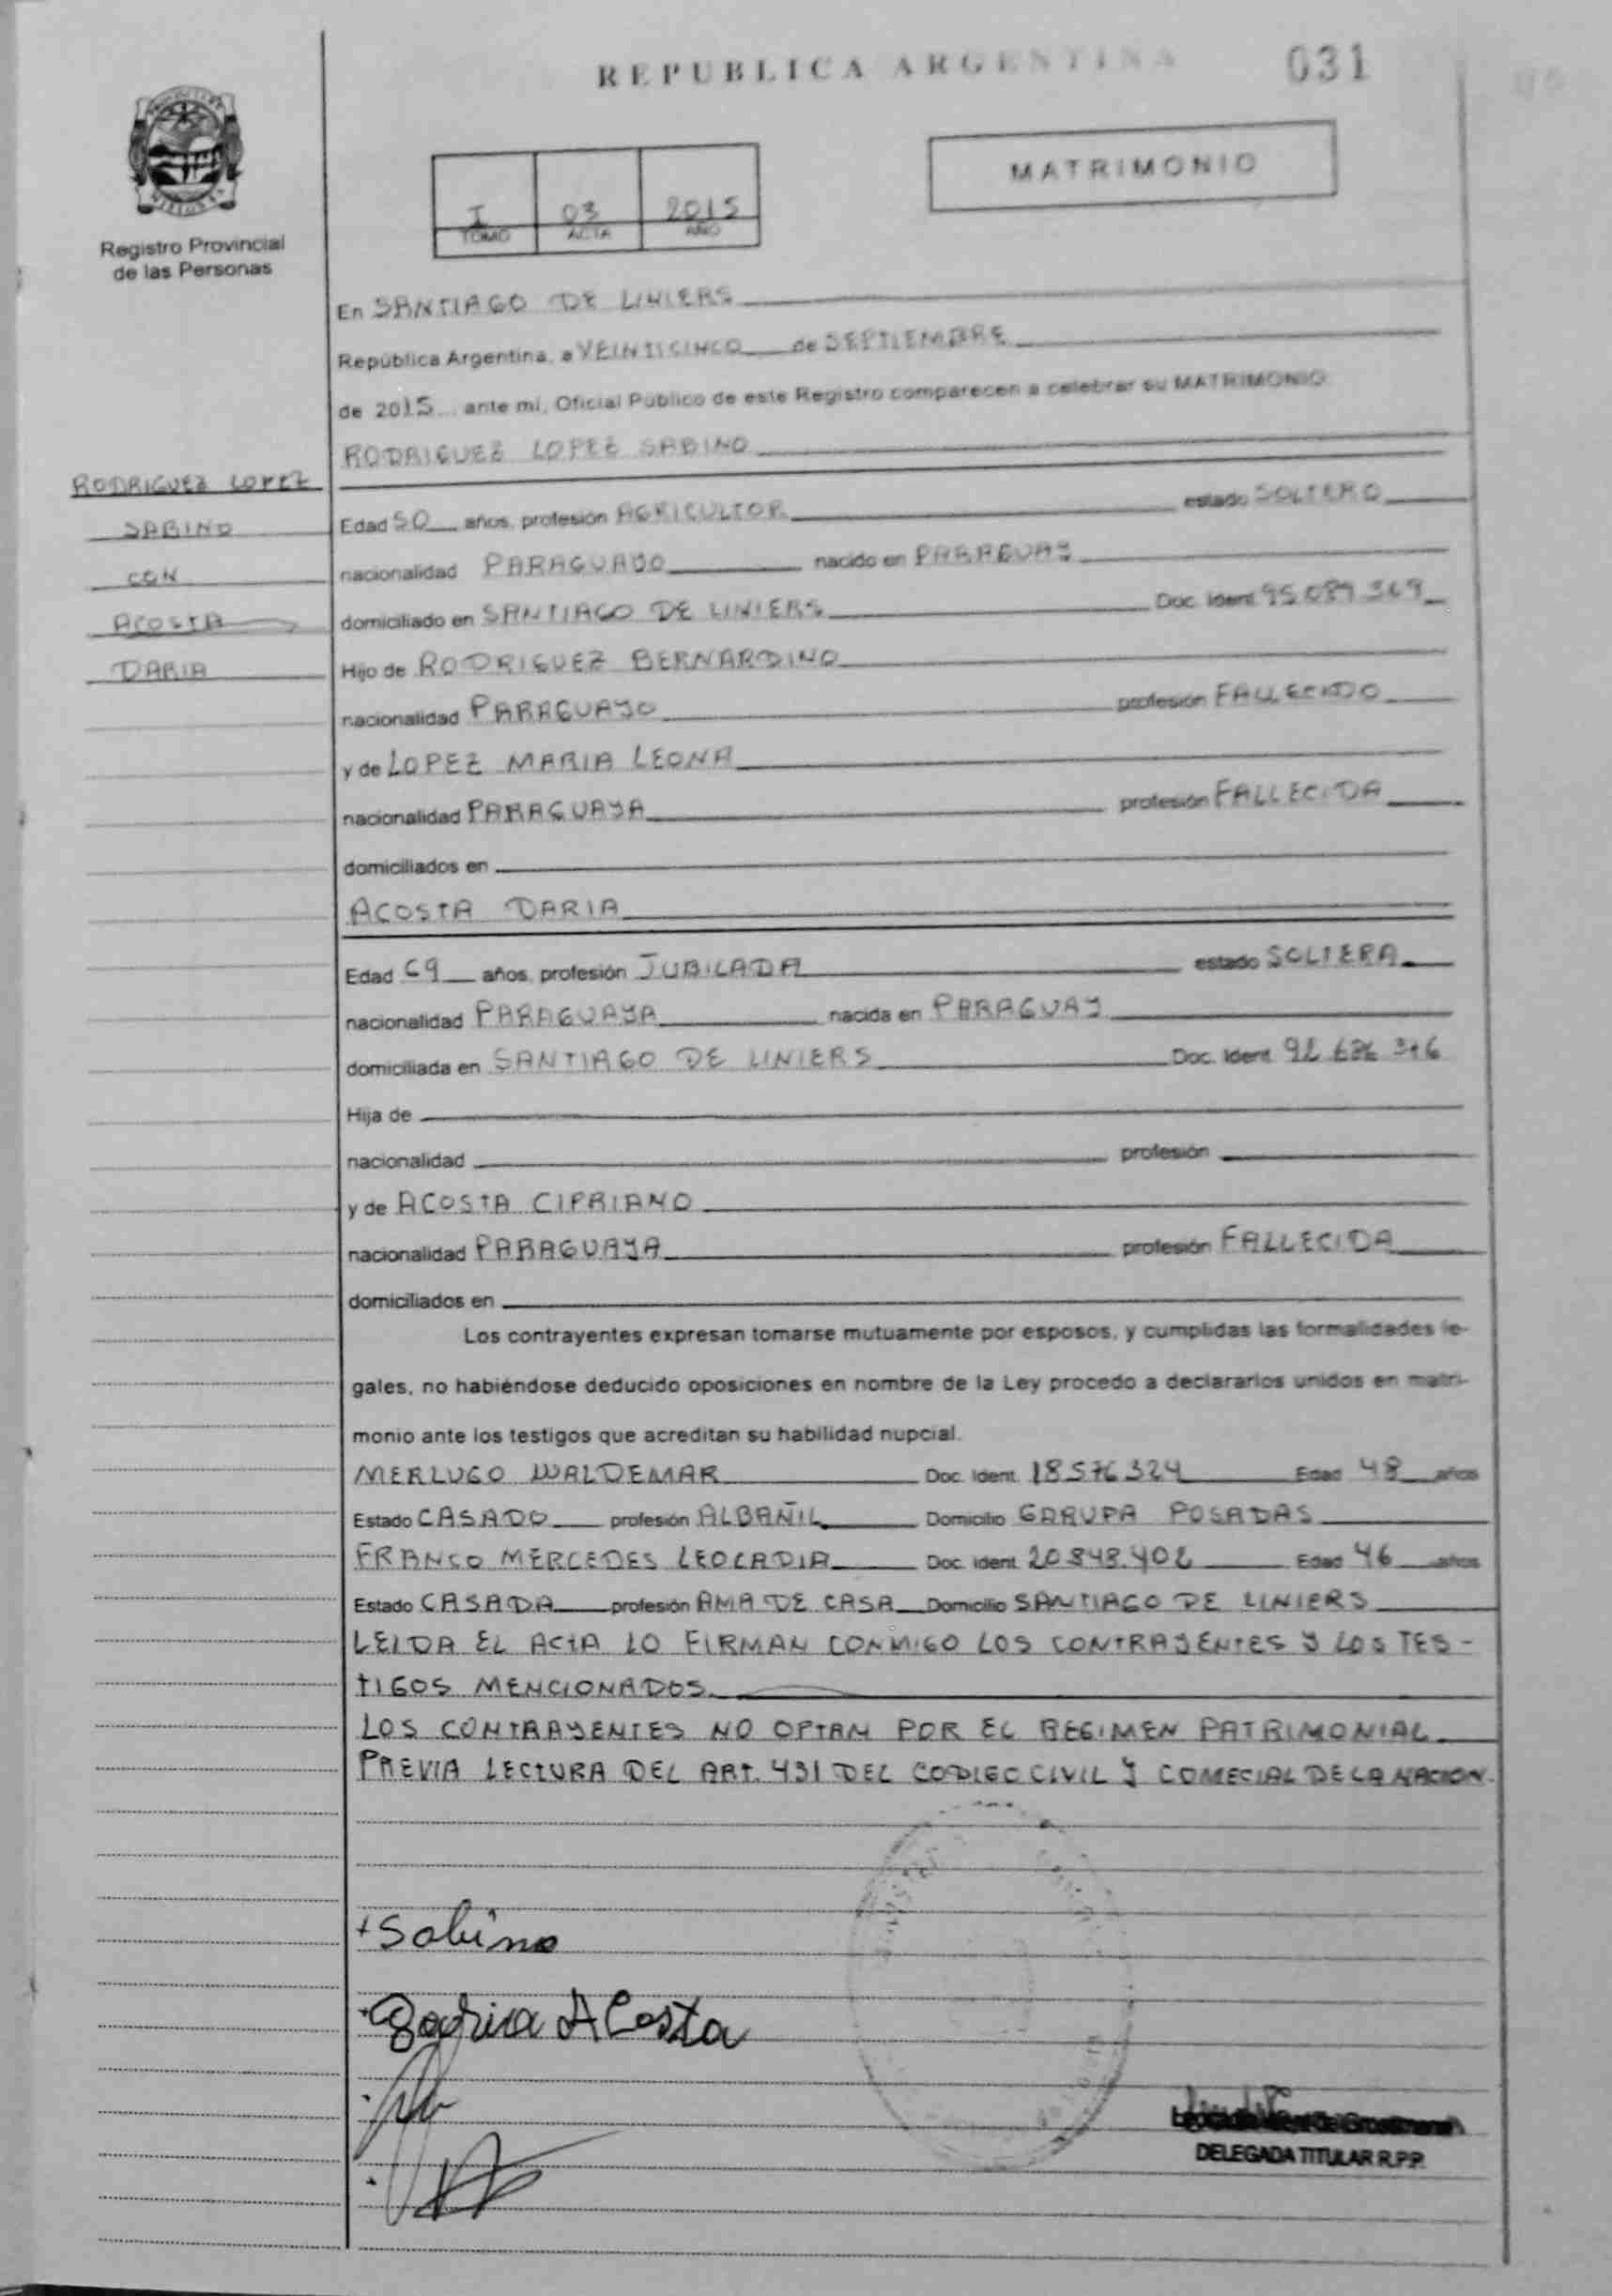 REPUBLICA ARGENTINA
031
MATRIMONIO
I 03 2015
TOMO ACTA AÑO
Registro Provincial
de las Personas
En SANTIAGO DE LINIERS
República Argentina, a VEINTICINCO de SEPTIEMBRE
de 2015 ante mi, Oficial Público de este Registro comparecen a celebrar su MATRIMONIO
RODRIGUEZ LOPEZ SABINO
RODRIGUEZ LOPEZ
SABINO
CON
ACOSTA
DARIA
Edad 50 años, profesión AGRICULTOR estado SOLTERO
nacionalidad PARAGUAYO nacido en PARAGUAY
domiciliado en SANTIAGO DE LINIERS Doc. Ident. 95.089.369
Hijo de RODRIGUEZ BERNARDINO
nacionalidad PARAGUAYO profesión FALLECIDO
y de LOPEZ MARIA LEONA
nacionalidad PARAGUAYA profesión FALLECIDA
domiciliados en
ACOSTA DARIA
Edad 69 años, profesión JUBILADA estado SOLTERA
nacionalidad PARAGUAYA nacida en PARAGUAY
domiciliada en SANTIAGO DE LINIERS Doc. Ident.
Hija de
nacionalidad profesión
y de ACOSTA CIPRIANO
nacionalidad PARAGUAYA profesión FALLECIDA
domiciliados en
Los contrayentes expresan tomarse mutuamente por esposos, y cumplidas las formalidades le-
gales, no habiéndose deducido oposiciones en nombre de la Ley procedo a declararlos unidos en matri-
monio ante los testigos que acreditan su habilidad nupcial.
MERLUGO WALDEMAR Doc. Ident. 18576324 Edad 48 años
Estado CASADO profesión ALBAÑIL Domicilio GARUPA POSADAS
FRANCO MERCEDES LEOCADIA Doc. Ident. 20.848.402 Edad 46 años
Estado CASADA profesión AMA DE CASA Domicilio SANTIAGO DE LINIERS
LEIDA EL ACTA LO FIRMAN CONMIGO LOS CONTRAYENTES Y LOS TES-
TIGOS MENCIONADOS.
LOS CONTRAYENTES NO OPTAN POR EL REGIMEN PATRIMONIAL
PREVIA LECTURA DEL ART. 431 DEL CODIGO CIVIL Y COMECIAL DE LA NACION.
Sabino
Acosta
DELEGADA TITULAR R.P.P.